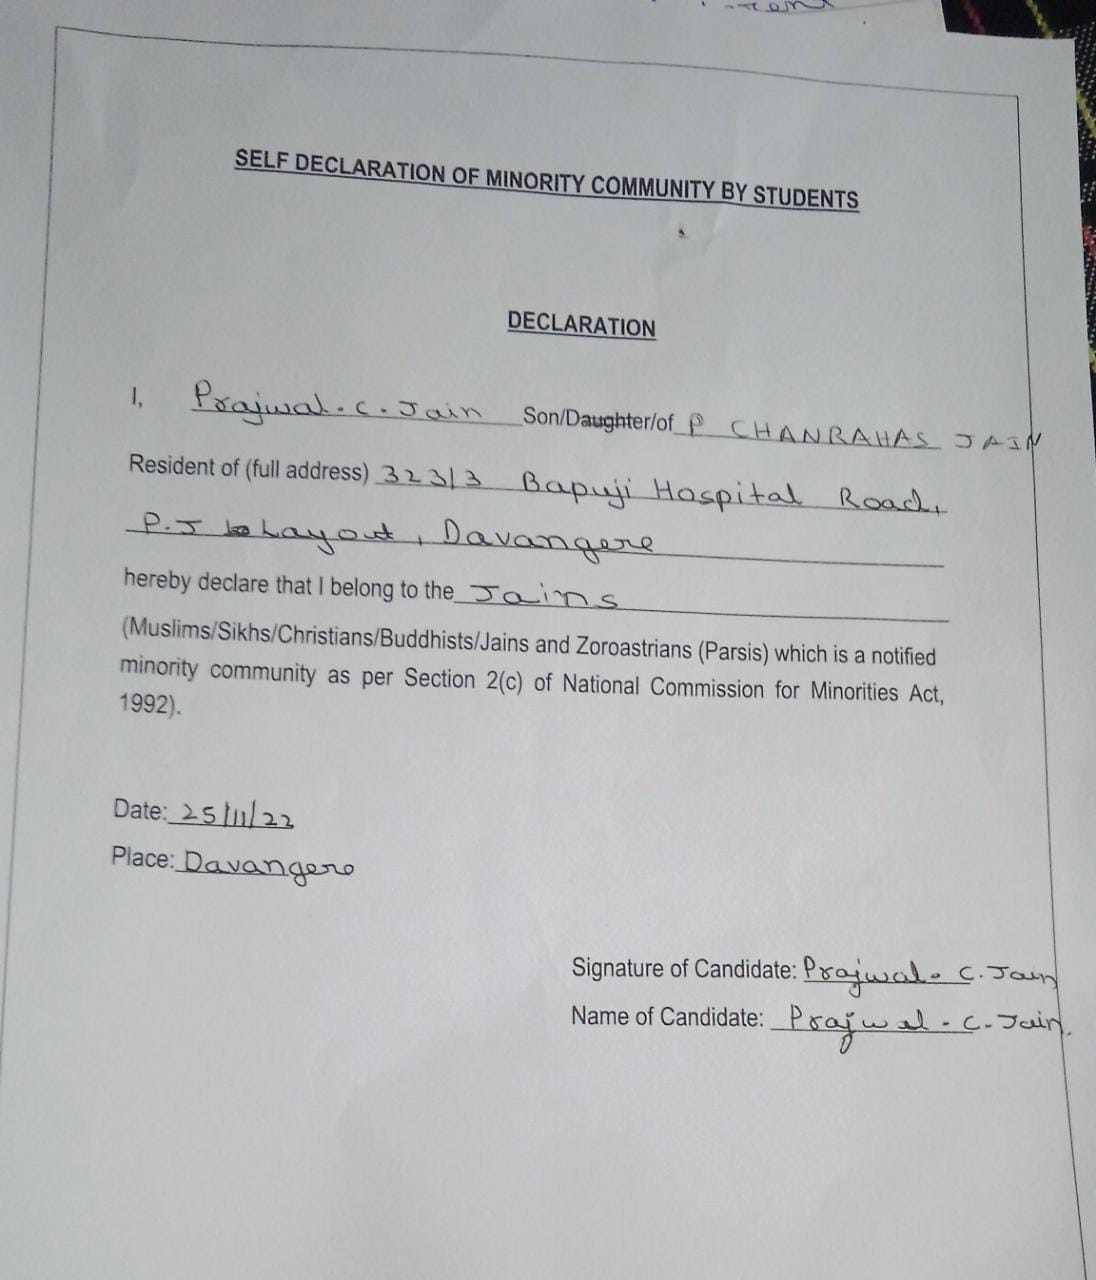 SELF DECLARATION OF MINORITY COMMUNITY BY STUDENTS
DECLARATION
I, Prajwal. C. Jain Son/Daughter/of P CHANRAHAS JAIN
Resident of (full address) 323/3 Bapuji Hospital Road,
P.J Layout, Davangere
hereby declare that I belong to the Jains
(Muslims/Sikhs/Christians/Buddhists/Jains and Zoroastrians (Parsis) which is a notified
minority community as per Section 2(c) of National Commission for Minorities Act,
1992).
Date: 25/11/22
Place: Davangere
Signature of Candidate: Prajwal. C. Jain
Name of Candidate: Prajwal. C. Jain.